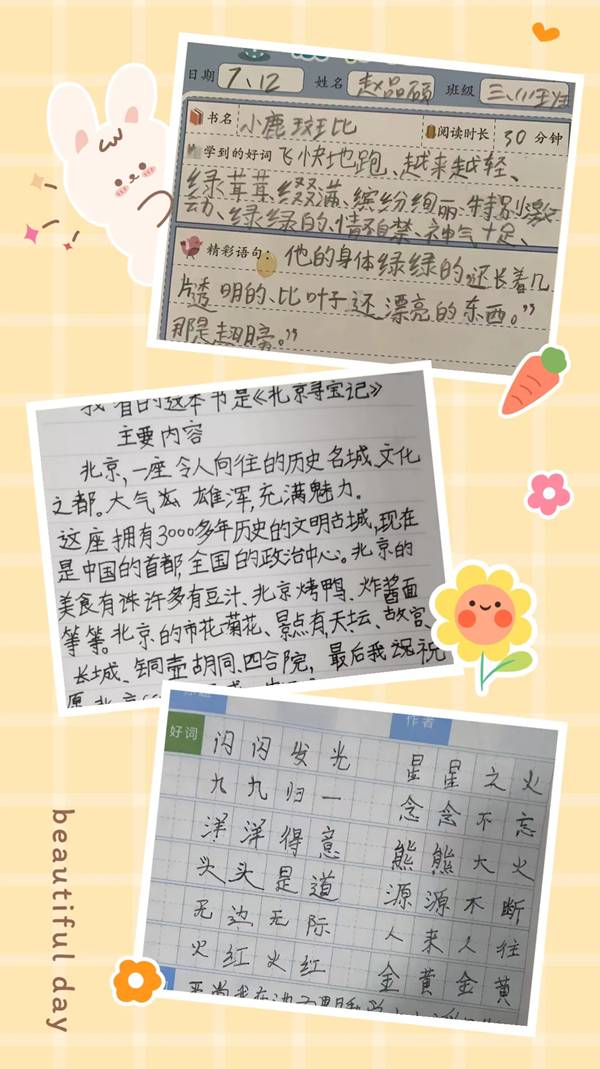 日期 7、12 姓名 赵品硕 班级
书名 小鹿斑比 阅读时长 30 分钟
学到的好词 飞快地跑、越来越轻、
绿茸茸、缀满、缤纷绚丽、特别激
动、绿绿的、情不自禁、神气十足、
精彩语句: 他的身体绿绿的,还长着几
片透明的、比叶子还漂亮的东西。”
那是翅膀。”
我看的这本书是《北京寻宝记》
主要内容
北京,一座令人向往的历史名城、文化
之都。大气 雄浑,充满魅力。
这座拥有3000多年历史的文明古城,现在
是中国的首都,全国的政治中心。北京的
美食有 许多有豆汁、北京烤鸭、炸酱面
等等。北京的市花菊花、景点有,天坛、故宫、
长城、铜壶胡同、四合院,最后我 祝
愿北京
好词 作者
闪闪发光 星星之火
九九归一 念念不忘
洋洋得意 熊熊大火
头头是道 源源不断
无边无际 人来人往
火红火红 金黄金黄
beautiful day